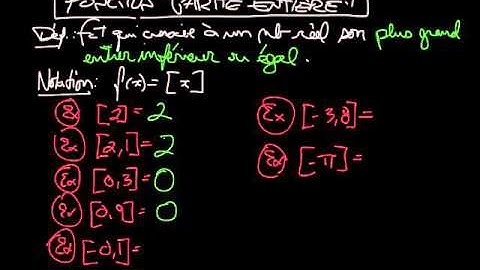 FONCTION PARTIE ENTIÈRE
Déf: fct qui associe à un nb réel son plus grand
entier inférieur ou égal.
Notation: f(x) = [x]
Ex [2] = 2
Ex [2,1] = 2
Ex [0,3] = 0
Ex [0,9] = 0
Ex [-0,1] =
Ex [-3,8] =
Ex [-π] =